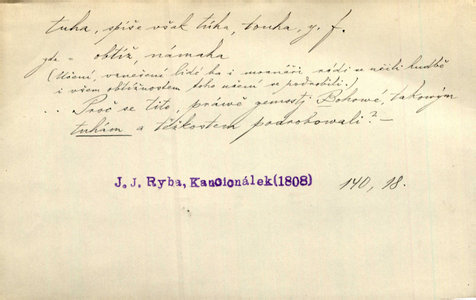 tuha, spíše však túha, touha, y, f.
zde = obtíž, námaha
(Učení, vznešení lidé ba i mocnáři rádi v učili hudbě
i všem obtížnostem toho učení se podrobili.)
.. Proč se tito, práwě zemstj Bohowé, takowým
tuhám a těžkostem podrobowali? —
J. J. Ryba, Kancionálek(1808) 140, 18.